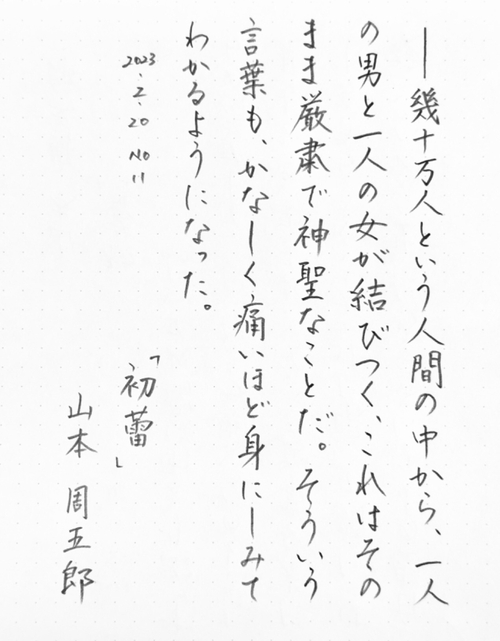 ―幾十万人という人間の中から、一人
の男と一人の女が結びつく、これはその
まま厳粛で神聖なことだ。そういう
言葉も、かなしく痛いほど身にしみて
わかるようになった。
2023.2.20 No 11
「初蕾」
山本 周五郎